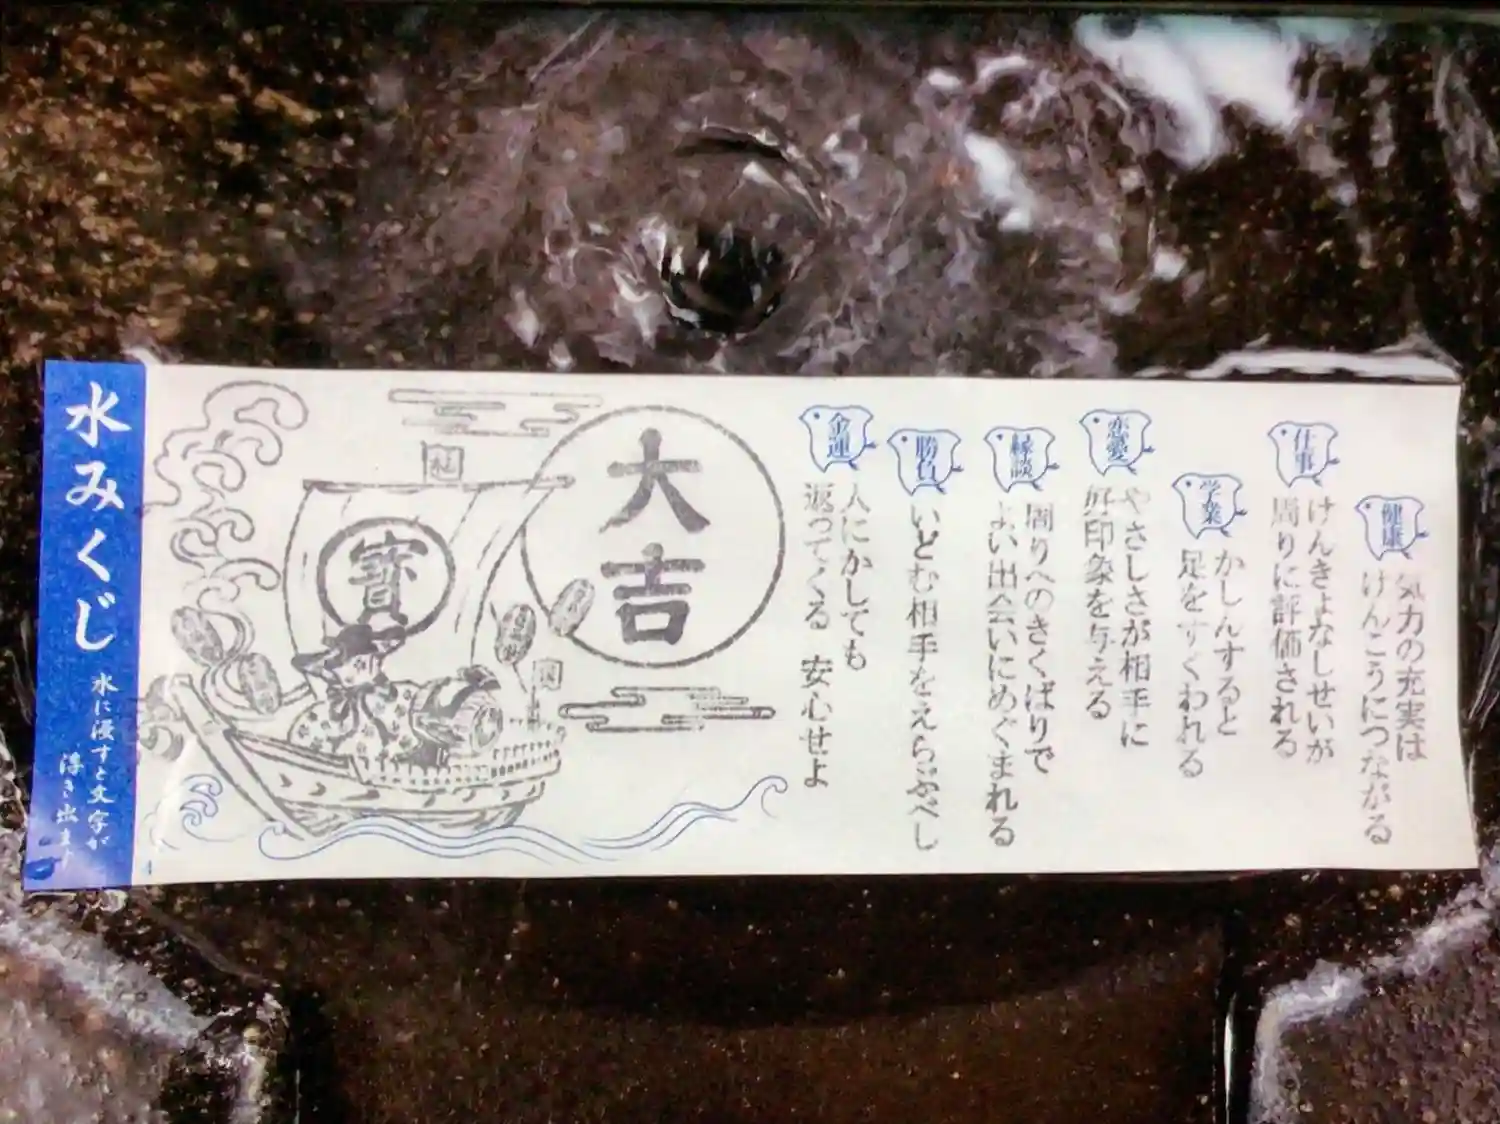 健康
気力の充実は
けんこうにつながる
仕事
けんきょなしせいが
周りに評価される
学業
かしんすると
足をすくわれる
恋愛
やさしさが相手に
好印象を与える
縁談
周りへのきくばりで
よい出会いにめぐまれる
勝負
いどむ相手をえらぶべし
金運
人にかしても
返ってくる 安心せよ
大吉
寳
水みくじ
水に浸すと文字が
浮き出ます
4